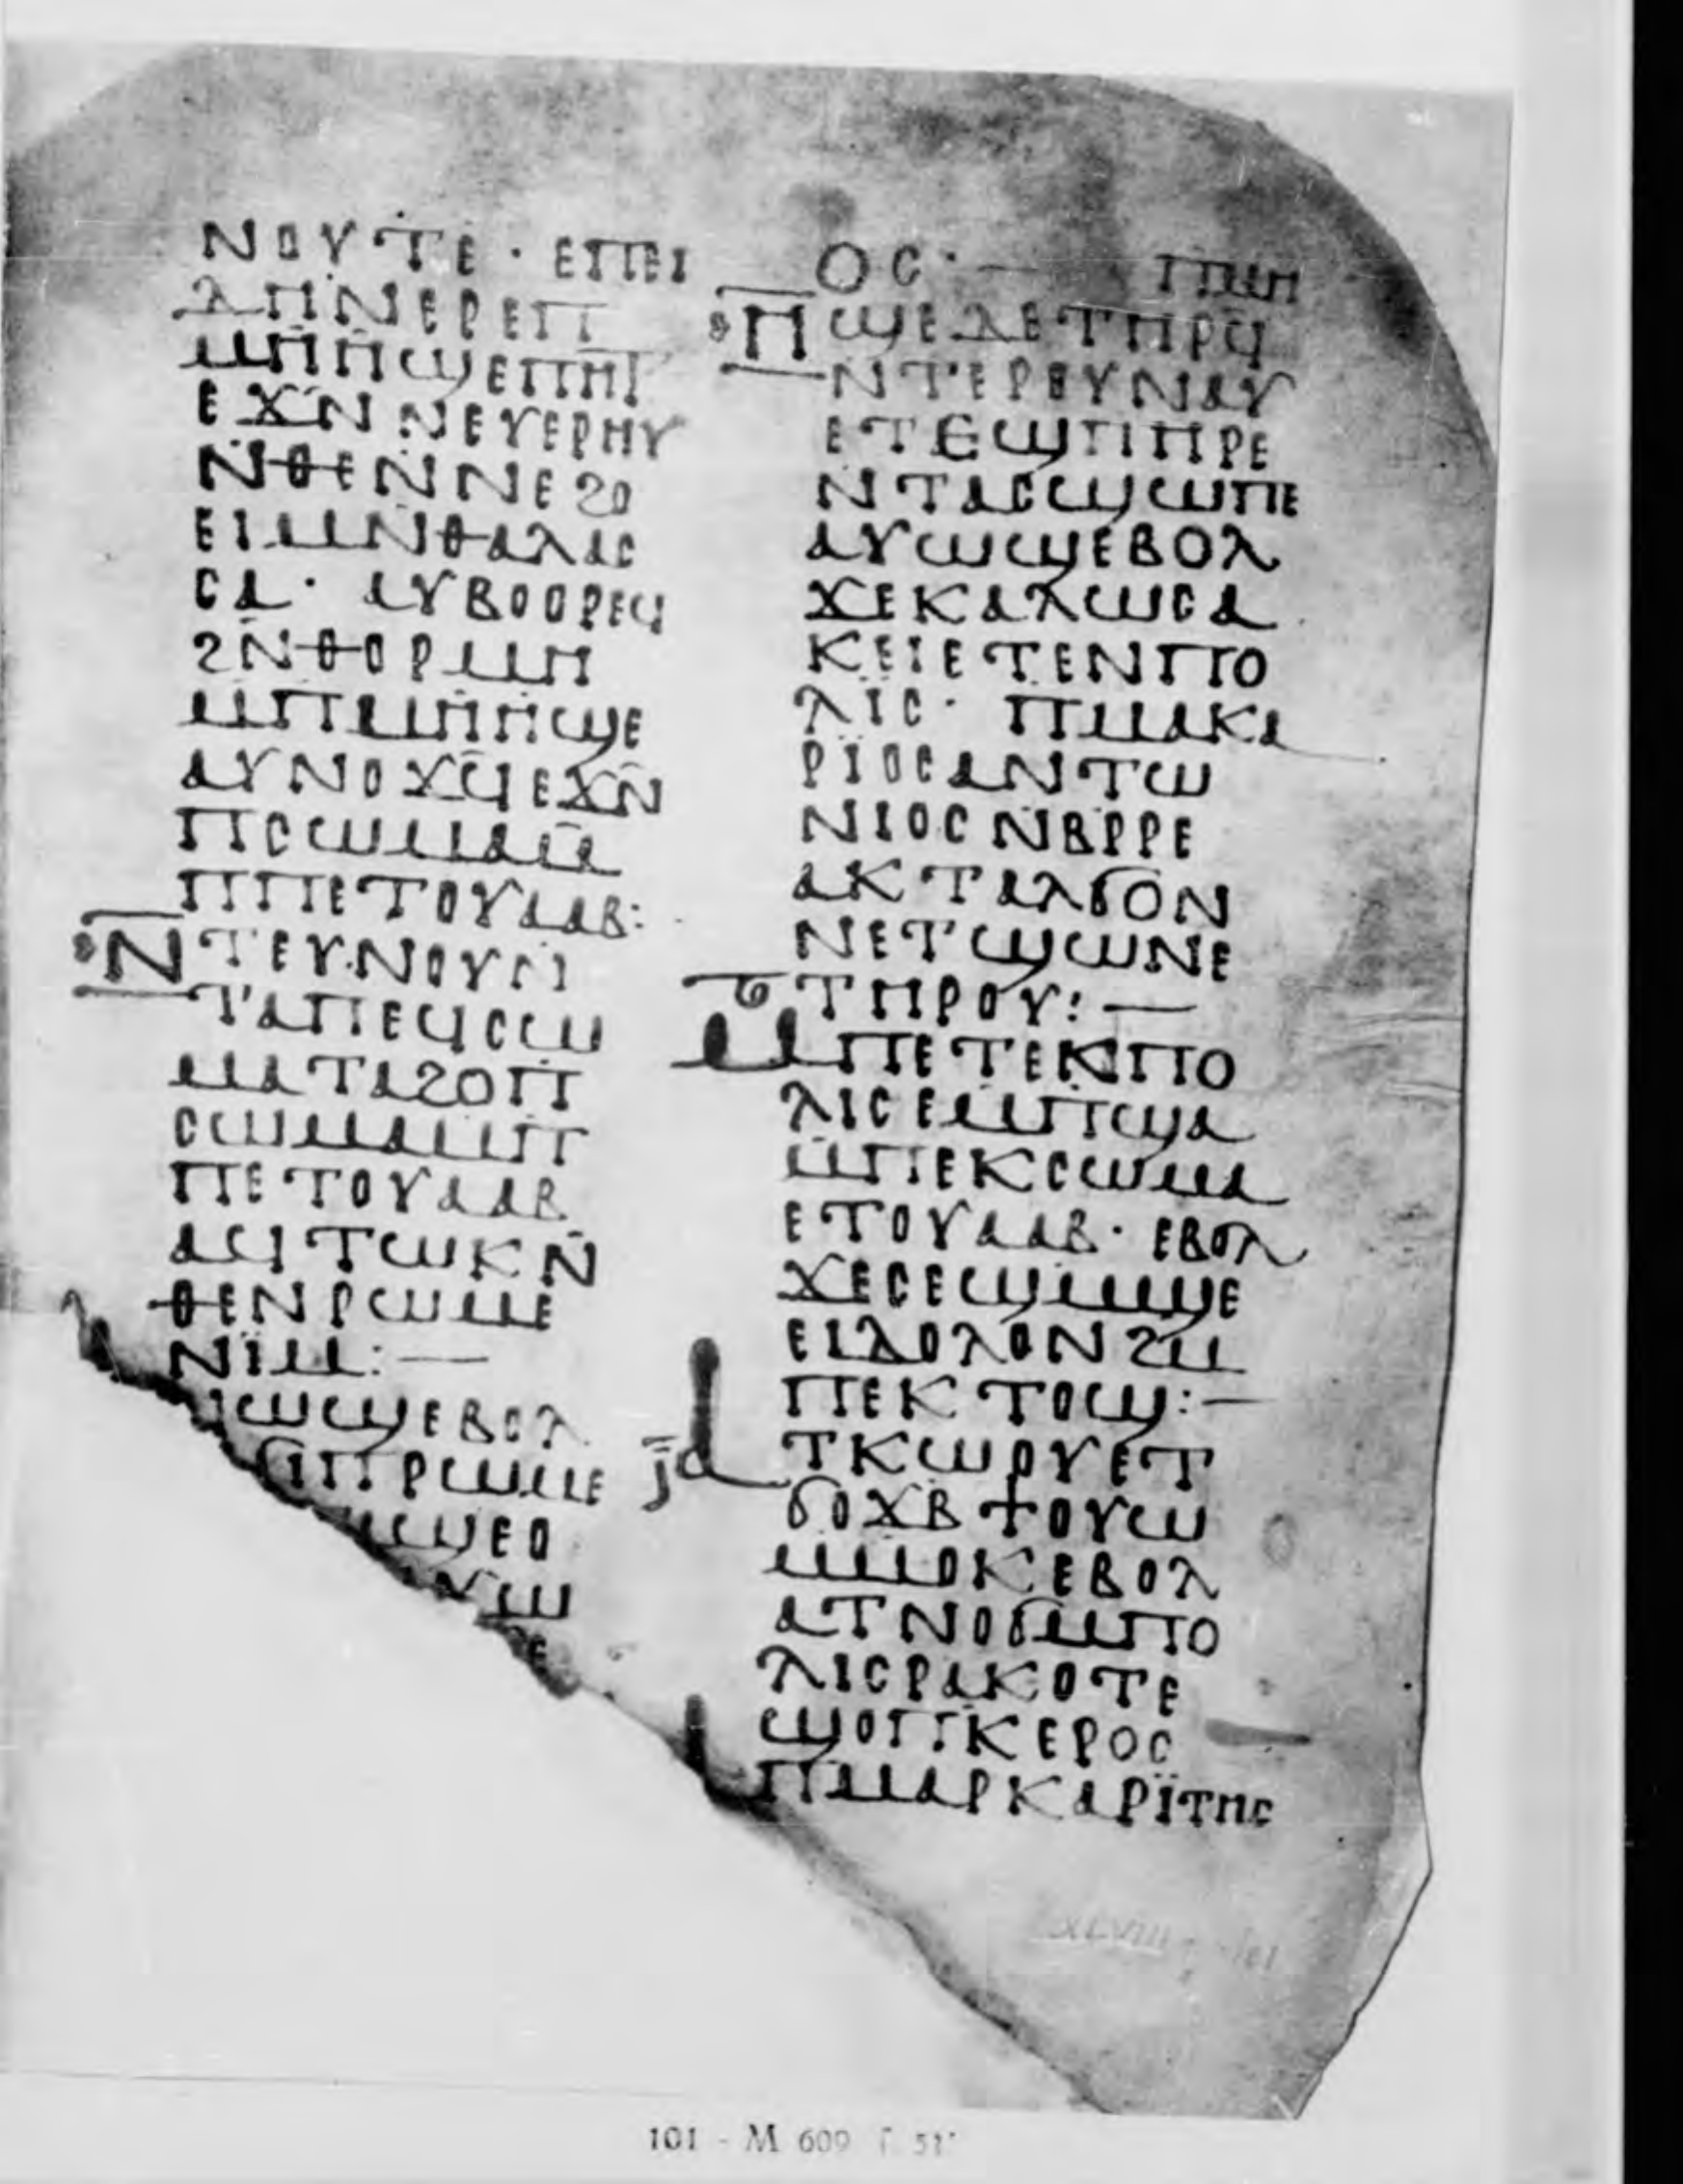 ⲚⲞⲨⲦⲈ · ⲈⲠⲈⲒ
ⲆⲎⲚⲈⲢⲈⲠ
ⲘⲎⲎϢⲈⲠⲎⲒ
ⲈϪⲚⲚⲈⲨⲈⲢⲎⲨ
ⲚⲐⲈⲚⲚⲈϨⲞ
ⲈⲒⲘⲚⲐⲀⲖⲀⲤ
ⲤⲀ · ⲀⲨⲂⲞⲞⲢⲈϤ
ϨⲚⲐⲞⲢⲘⲎ
ⲘⲠⲘⲎⲎϢⲈ
ⲀⲨⲚⲞϪϤⲈϪⲚ̄
ⲠⲤⲰⲘⲀⲘ̄
ⲠⲠⲈⲦⲞⲨⲀⲀⲂ:
ⲚⲦⲈⲨⲚⲞⲨⲚ
ⲦⲀⲠⲈϤⲤⲰ
ⲘⲀⲦⲀϨⲞⲠ
ⲤⲰⲘⲀⲘⲠ
ⲠⲈⲦⲞⲨⲀⲀⲂ
ⲀϤⲦⲰⲔⲚ̄
ⲐⲈⲚⲢⲰⲘⲈ
ⲚⲒⲘ:—
ⲰϢⲈⲂⲞⲖ
ϬⲒⲠⲢⲰⲘⲈ
ϢⲈⲞ
ⲞⲤ·— ⲠⲘ
ⲎⲎϢⲈⲆⲈⲦⲎⲢϤ
ⲚⲦⲈⲢⲞⲨⲚⲀⲨ
ⲈⲦⲈϢⲠⲎⲢⲈ
ⲚⲦⲀⲤϢⲰⲠⲈ
ⲀⲨⲰϢⲈⲂⲞⲖ
ϪⲈⲔⲀⲖⲰⲤⲀ
ⲔⲈⲒⲈⲦⲈⲚⲠⲞ
ⲖⲒⲤ · ⲠⲘⲀⲔⲀ
ⲢⲒⲞⲤⲀⲚⲦⲰ
ⲚⲒⲞⲤⲚⲂⲢⲢⲈ
ⲀⲔⲦⲀⲖϬⲞⲚ
ⲚⲈⲦϢⲰⲚⲈ
ⲦⲎⲢⲞⲨ:—
ⲘⲠⲈⲦⲈⲔⲠⲞ
ⲖⲒⲤⲈⲘⲠϢⲀ
ⲘⲠⲈⲔⲤⲰⲘⲀ
ⲈⲦⲞⲨⲀⲀⲂ · ⲈⲂⲞⲖ
ϪⲈⲤⲈϢⲘϢⲈ
ⲈⲒⲆⲞⲖⲞⲚϨⲘ
ⲠⲈⲔⲦⲞϢ:—
ⲒⲀ ⲀⲦⲔⲰⲞⲨⲈⲦ
ϬⲞϪⲂϮⲞⲨⲰ
ⲘⲘⲞⲔⲈⲂⲞⲖ
ⲀⲦⲚⲞϬⲘⲠⲞ
ⲖⲒⲤⲢⲀⲔⲞⲦⲈ
ϢⲞⲠⲔⲈⲢⲞⲤ
ⲠⲘⲀⲢⲔⲀⲢⲒⲦⲎⲤ
101 - M 609 f 51ᵛ